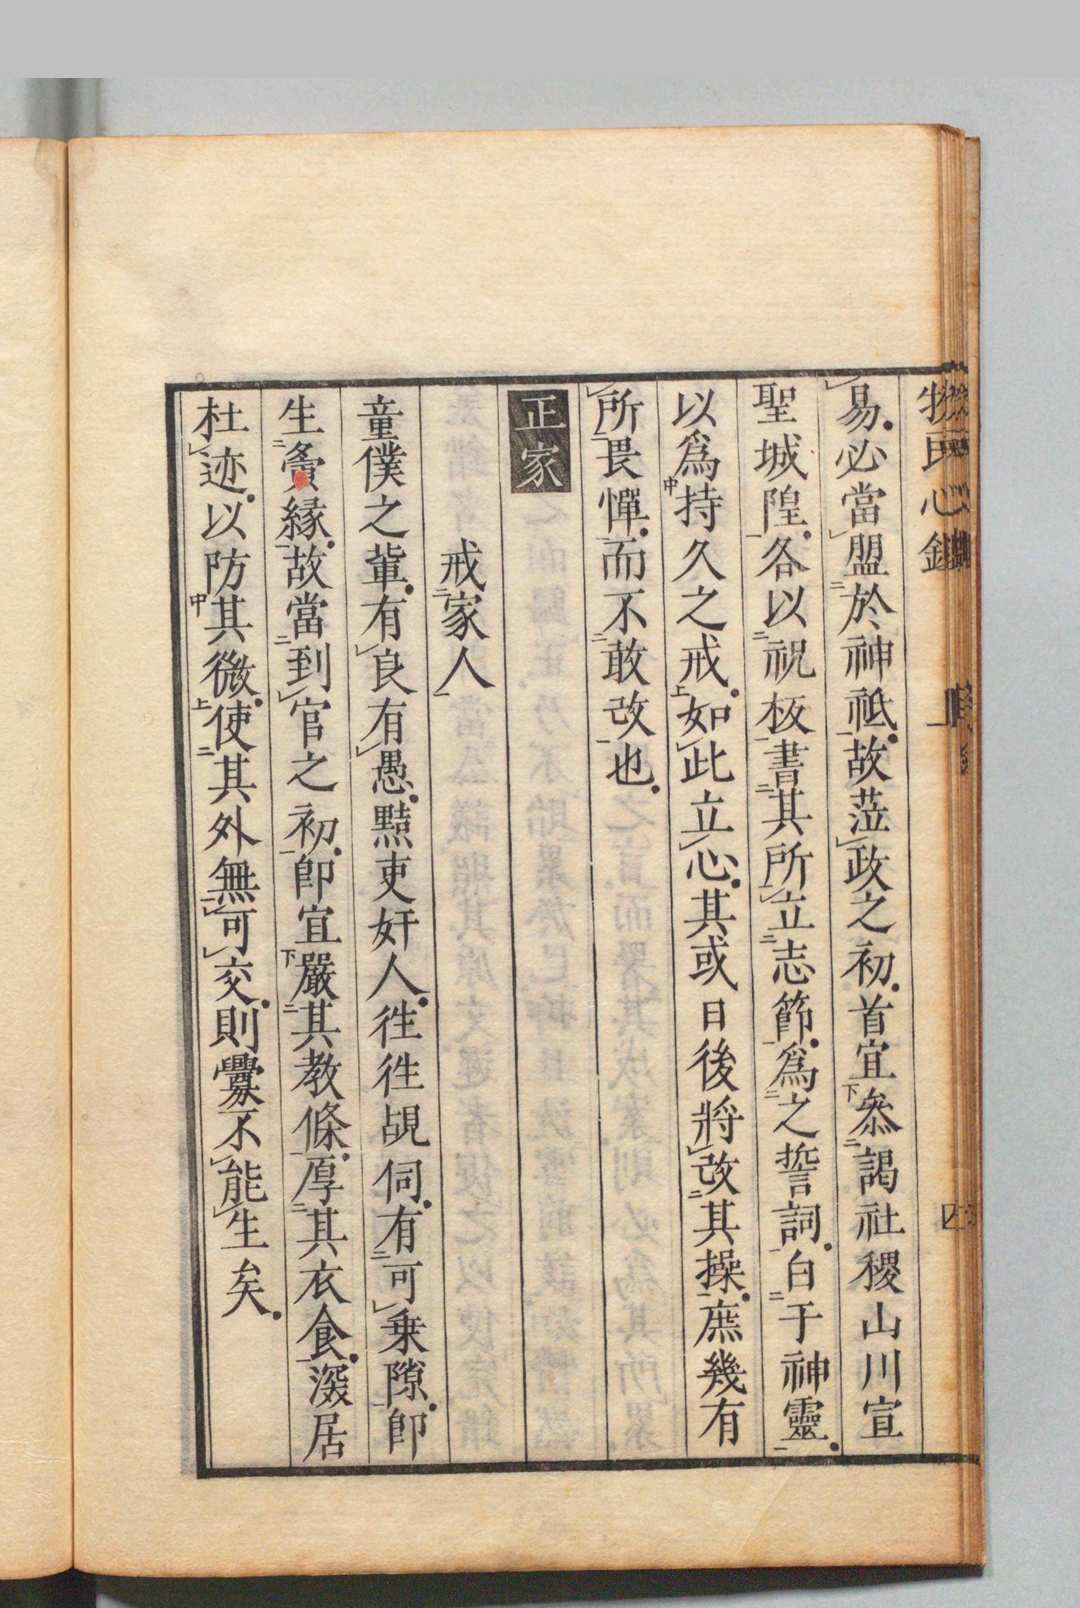 牧民心鑑 上 四
易必當盟於神祗故蒞政之初首宜叅謁社稷山川宣
聖城隍各以祝板書其所立志節爲之誓詞白于神靈
以爲持久之戒如此立心其或日後將改其操庶幾有
所畏憚而不敢改也
正家
戒家人
童僕之軰有良有愚黠吏奸人徃徃覘伺有可乗隙卽
生夤緣故當到官之初卽宜嚴其教條厚其衣食深居
杜迹以防其微使其外無可交則釁不能生矣